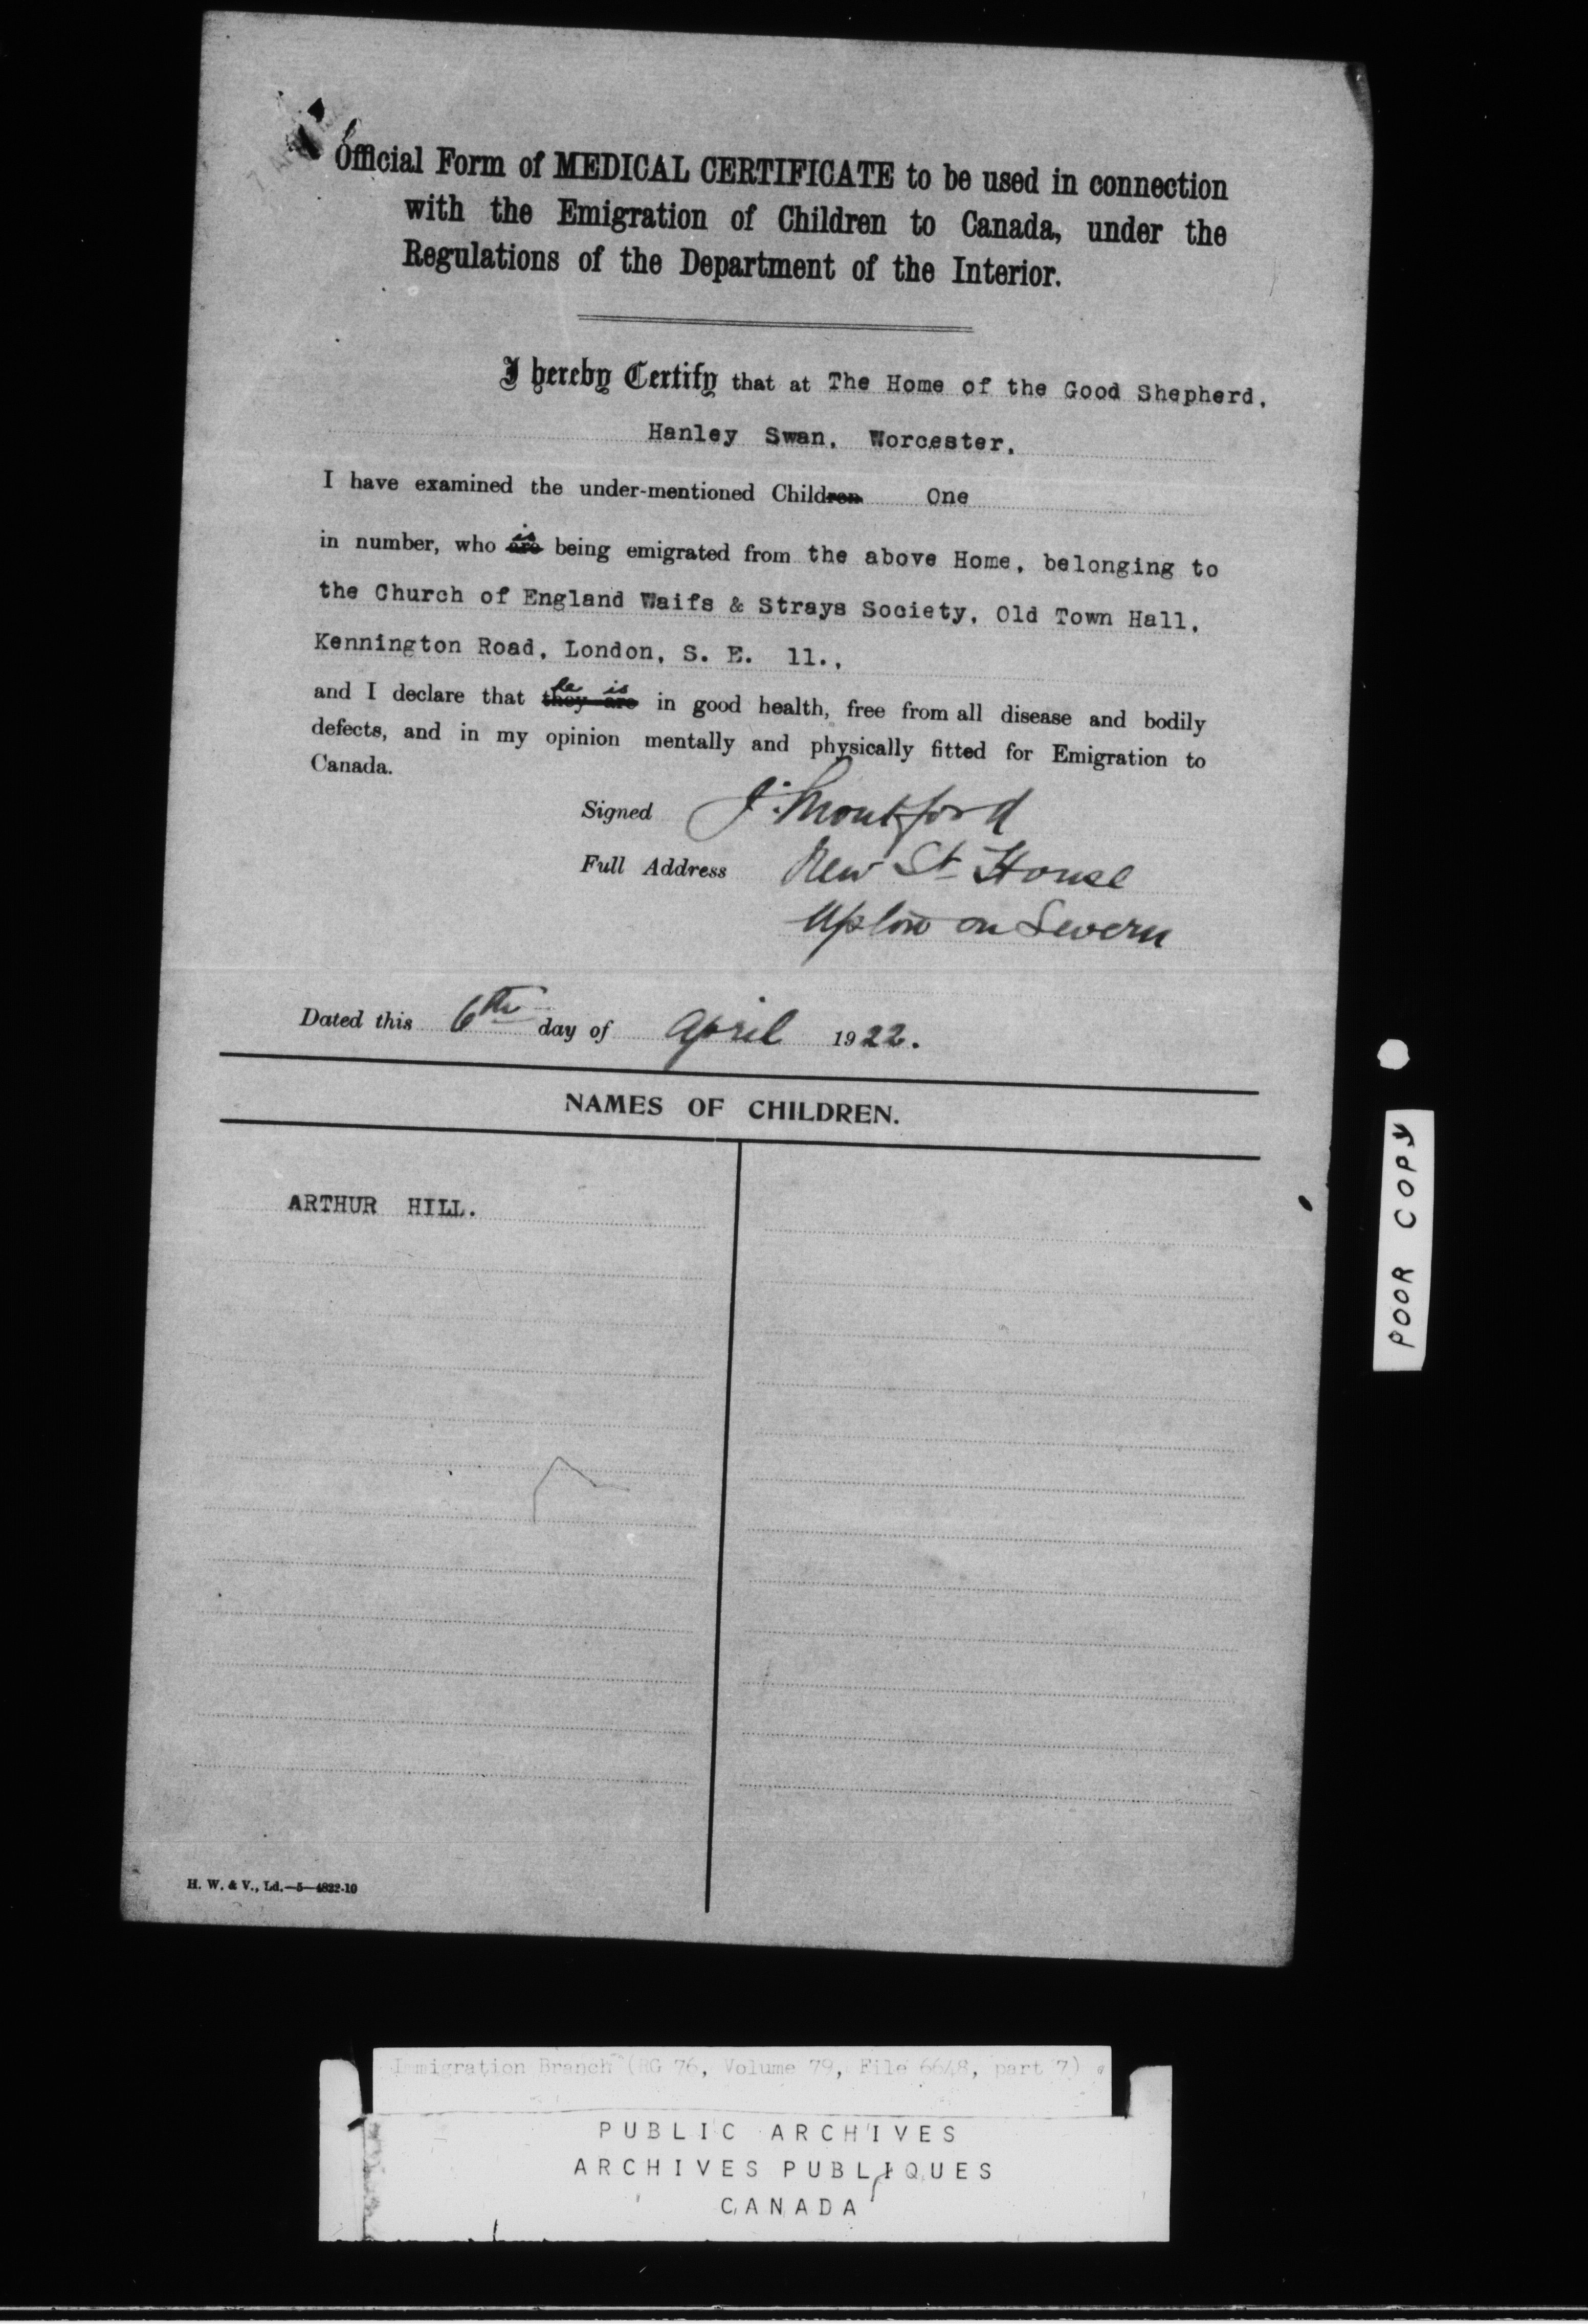 Official Form of MEDICAL CERTIFICATE to be used in connection
with the Emigration of Children to Canada, under the
Regulations of the Department of the Interior.
I hereby Certify that at The Home of the Good Shepherd,
Hanley Swan, Worcester,
I have examined the under-mentioned Children One
in number, who are is being emigrated from the above Home, belonging to
the Church of England Waifs & Strays Society, Old Town Hall,
Kennington Road, London, S. E. 11.,
and I declare that they are he is in good health, free from all disease and bodily
defects, and in my opinion mentally and physically fitted for Emigration to
Canada.
Signed J. Montford
Full Address New St House
Upton on Severn
Dated this 6th day of April 1922.
NAMES OF CHILDREN.
ARTHUR HILL.
H. W. & V., Ld.—5—4822-10
POOR COPY
Immigration Branch (RG 76, Volume 79, File 6648, part 7)
PUBLIC ARCHIVES
ARCHIVES PUBLIQUES
CANADA